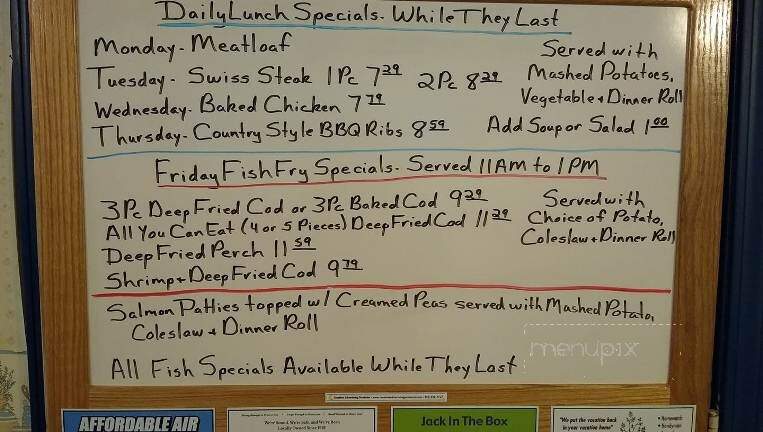 Daily Lunch Specials - While They Last
Monday - Meatloaf
Tuesday - Swiss Steak 1Pc 7.29 2Pc 8.29
Wednesday - Baked Chicken 7.79
Thursday - Country Style BBQ Ribs 8.59
Served with
Mashed Potatoes,
Vegetable + Dinner Roll
Add Soup or Salad 1.00
Friday Fish Fry Specials - Served 11AM to 1PM
3Pc Deep Fried Cod or 3Pc Baked Cod 9.29
All You Can Eat (4 or 5 Pieces) Deep Fried Cod 11.29
Deep Fried Perch 11.59
Shrimp + Deep Fried Cod 9.79
Served with
Choice of Potato,
Coleslaw + Dinner Roll
Salmon Patties topped w/ Creamed Peas served with Mashed Potato,
Coleslaw + Dinner Roll
All Fish Specials Available While They Last
menupix
AFFORDABLE AIR
Jack In The Box
"We put the vacation back
in your vacation home"